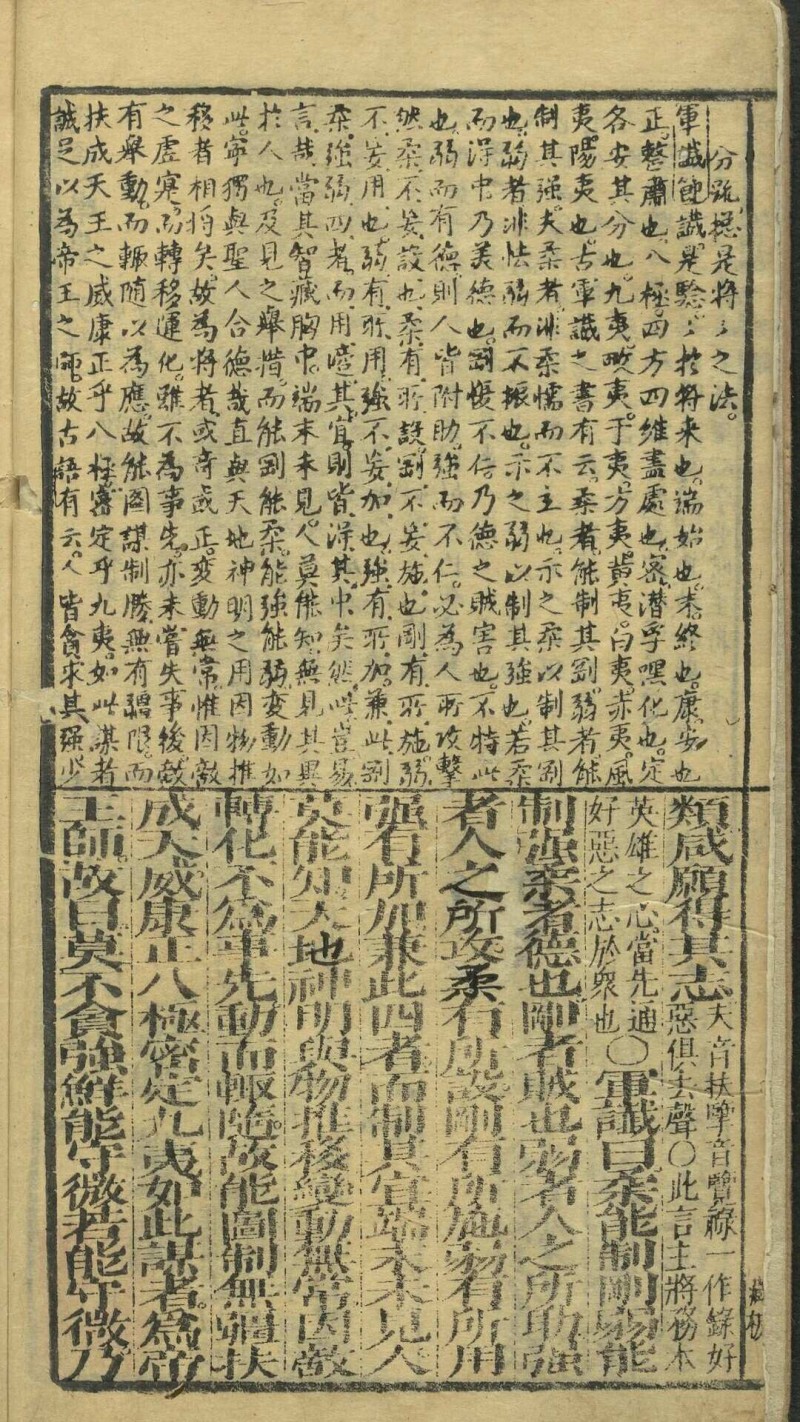 分疏摠是將々之法。
軍䜟蝕䜟是驗々於將来也。端始也。末。終也。康安也
正。整肅也。八極。四方四維盡處也。密潜孚嘿化也。定
各安其分也。九夷。畎夷。于夷。方夷。黄夷。白夷。赤夷。風
夷。陽夷也。古軍䜟之書有云。柔者。能制其剛。弱者能
制其强。夫柔者。非柔懦而不主也。示之柔以制其剛
也。弱者非怯弱而不振也。示之弱以制其強也。若柔
而淂中乃美德也。剛愎不仁乃德之賊害也。不特此
也。弱而有德。則人皆附助。强而不仁。必為人所攻擊
然柔不妄設也。柔有所設。剛不妄施也。剛有所施。弱
不妄用也。弱有所用。強不妄加也。強有所加。兼此剛
柔強弱四者。而用當其宜。則皆淂其中矣。然此豈易
言哉。當其智藏胸中。端末未見。人莫能知。無見其異
於人也。及見之舉措。而能剛能柔。能強能弱。変動如
此。寧獨與聖人合德哉。直與天地神明之用因物推
移者相將矣。故為將者。或奇或正。変動無常。惟因敵
之虚寔。而轉移運化。雖不為事先。亦未嘗失事後。敵
有舉動。而輒随以為應。故能啚謀制勝。無有疆限。而
扶成天王之威。康正乎八極。密定乎九夷。如此謀者
誠足以為帝王之師。故古語有云。人皆貪求其强。少
類咸願得其志夫音扶擥音覽祿一作錄好
惡俱去聲〇此言主將務本
英雄之心當先通
好惡之志於衆也〇軍䜟曰柔能制剛弱能
制强柔者德也剛者賊也弱者人之所助強
者人之所攻柔有所設剛有所施弱有所用
强有所加兼此四者而制其宜端末未見人
莫能知天地神明與物推移變動無常因敵
轉化不爲事先動而輒隨故能圖制無疆扶
成天威康正八極密定九夷如此謀者爲帝
王師故曰莫不貪強鮮能守微若能守微乃